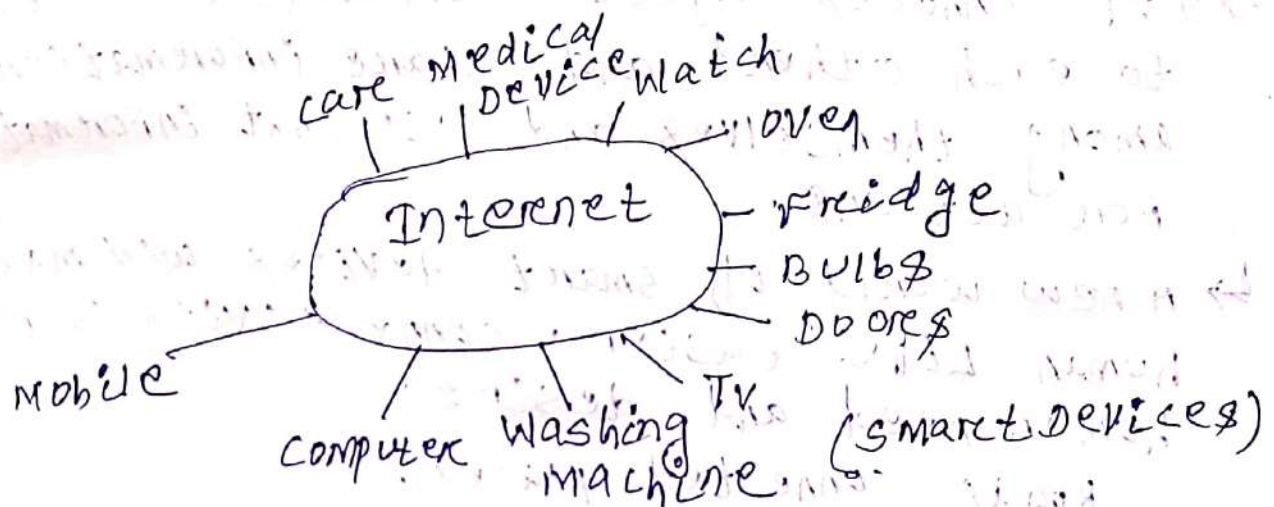 Car Medical Device Watch
Oven
Internet
Fridge
Bulbs
Doors
Mobile
TV
Computer Washing Machine
(Smart Devices)